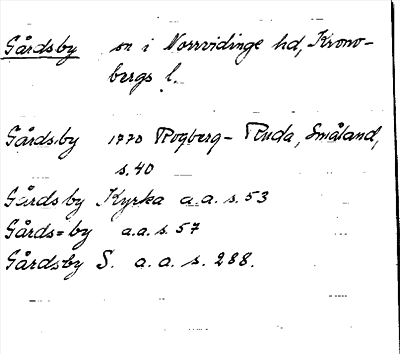 Gårdsby sn i Norrvidinge hd, Krono-
bergs l.
Gårdsby 1770 Rogberg - Ruda, Småland,
s. 40
Gårdsby Kyrka a.a. s. 53
Gårds=by a.a. s. 57
Gårdsby S. a.a. s. 288.